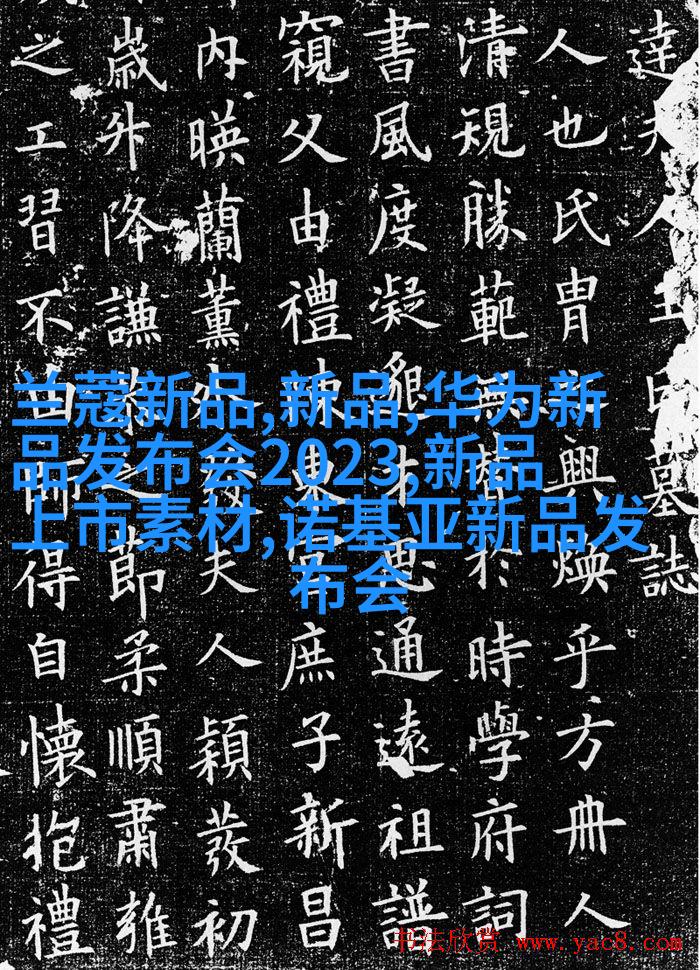 達夫人王墓誌
人也氏胄之興煥乎方冊人
清規勝範無替於時學府詞
書風度凝才通遠祖
窺父由禮陳東宮庶子新昌
内暎蘭薰外發夫人穎發初
歲升降謙恭之節柔順肅雍
之工習不由師得自懷抱禮
兰蔻新品,新品,华为新
品发布会2023,新品
上市素材,诺基亚新品发
布会
书法欣赏 www.yac8.com